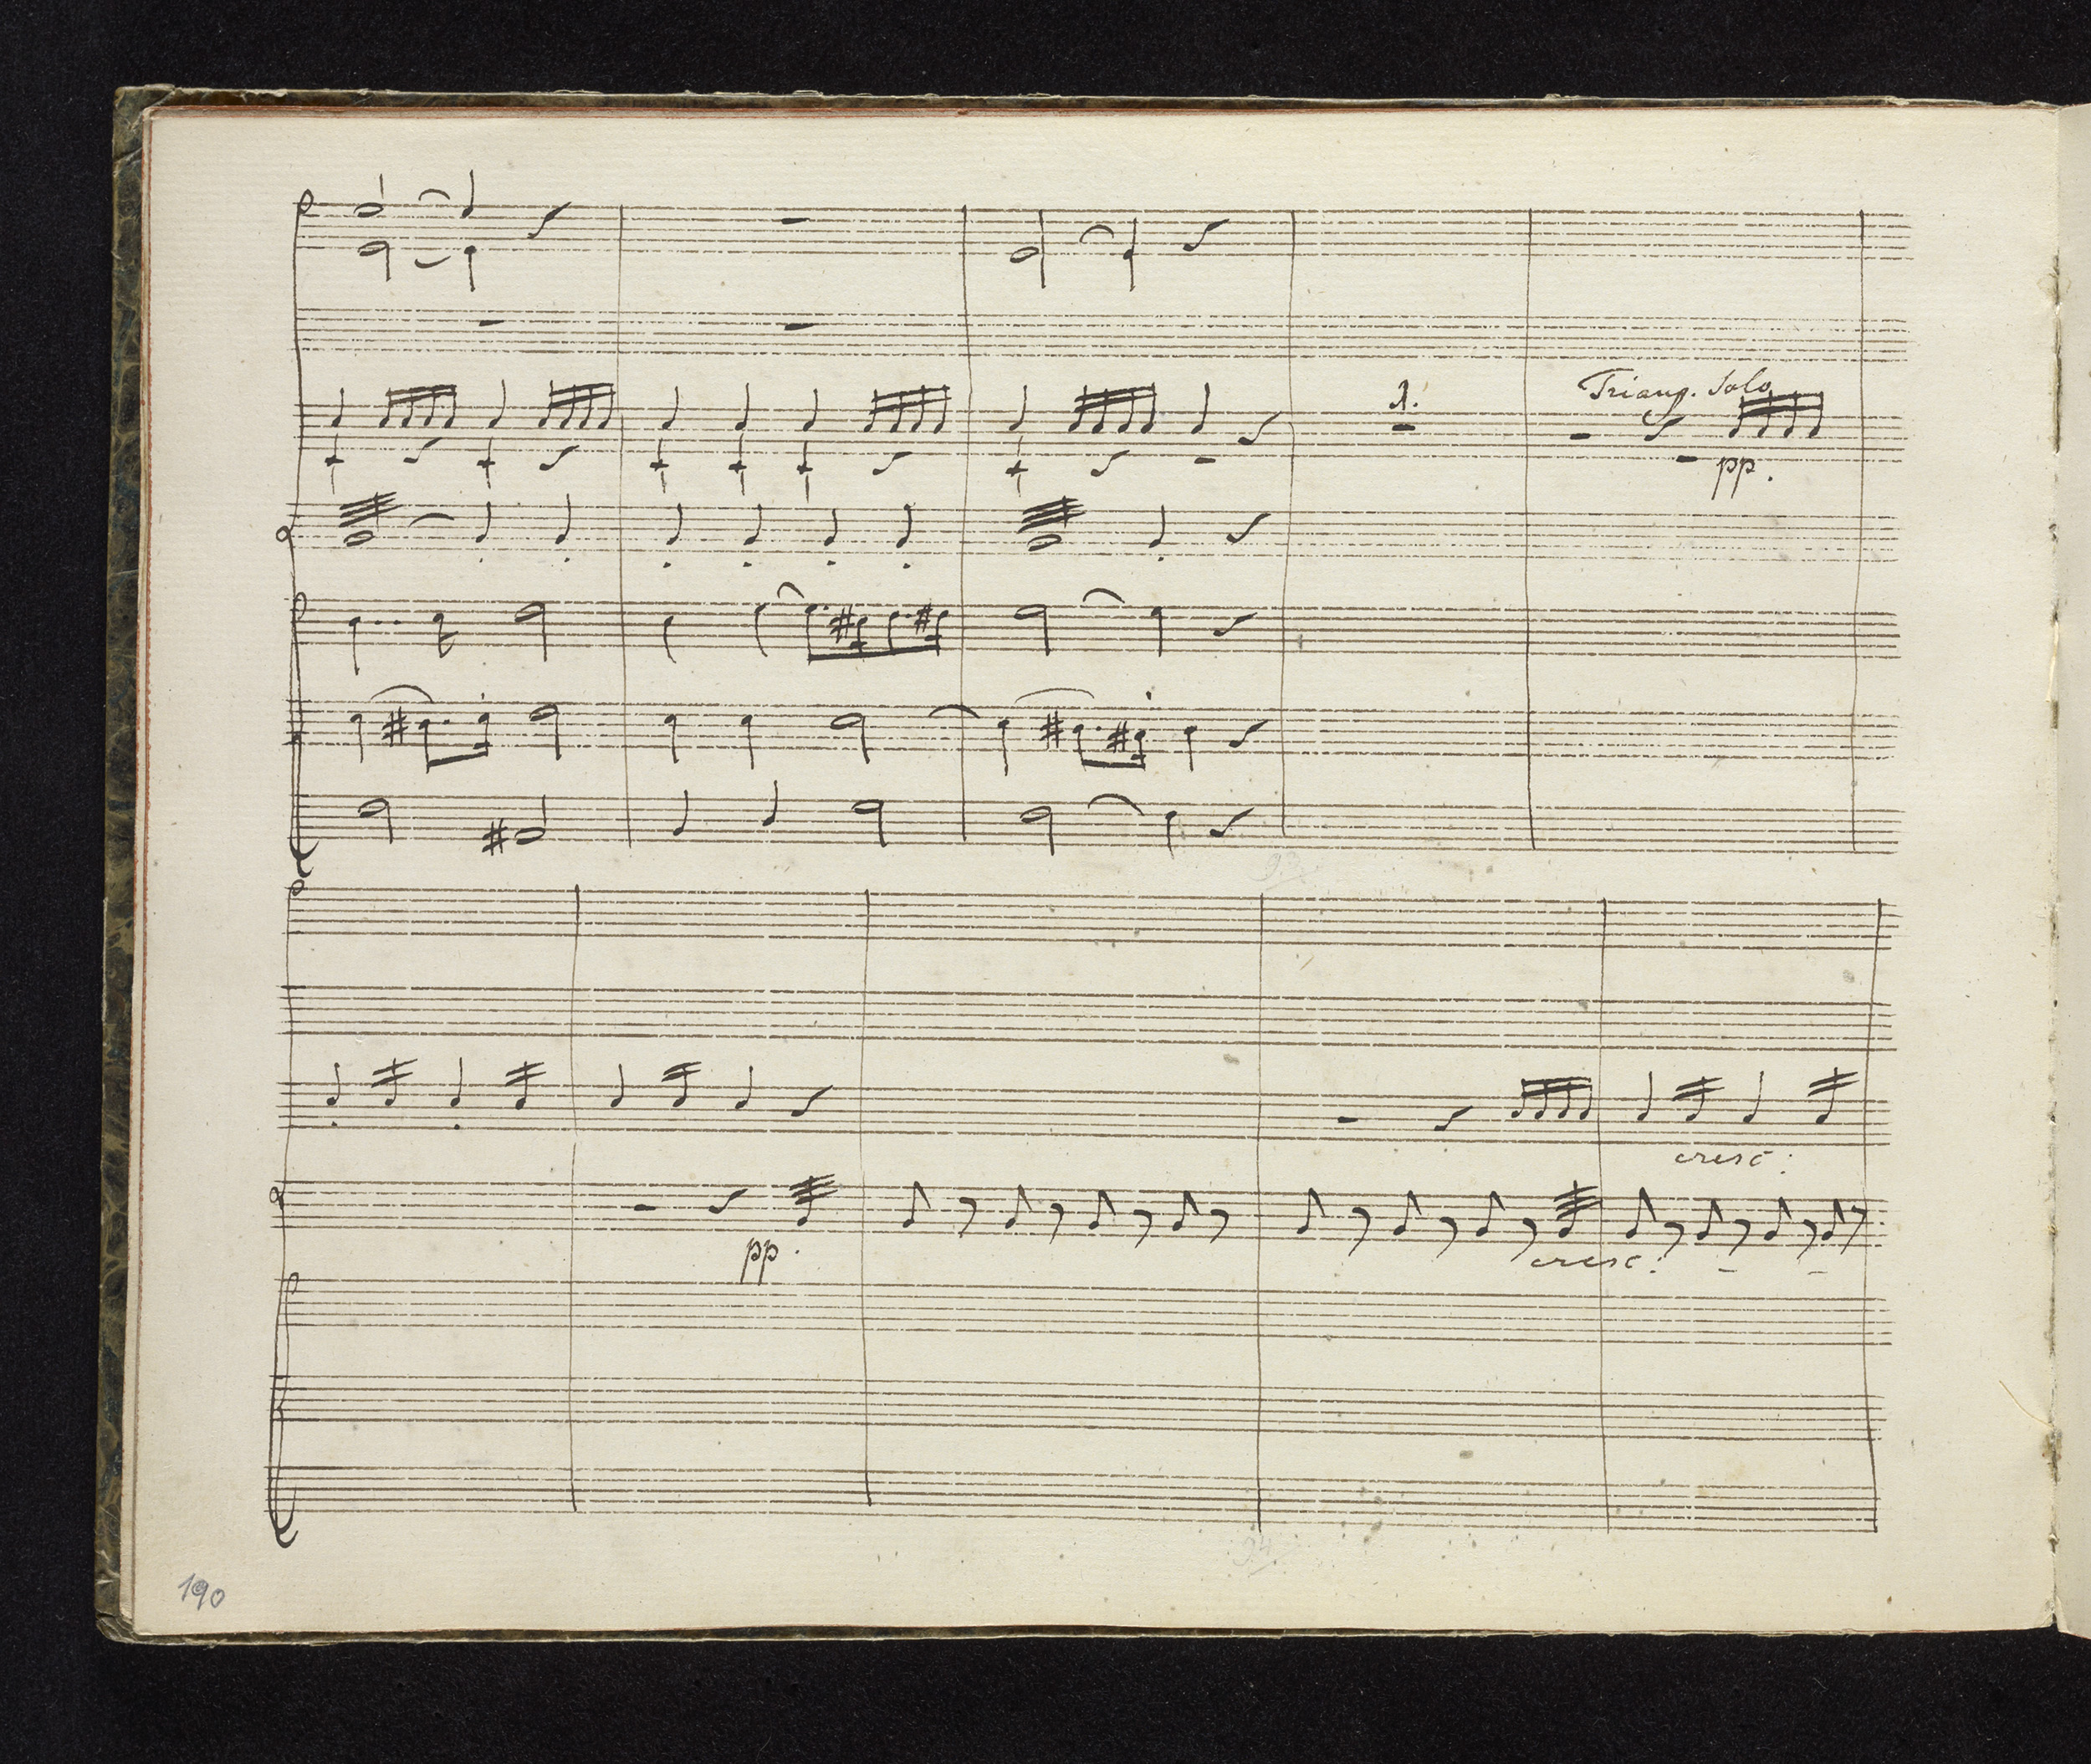 1.
Triang. Solo
pp.
cresc:
pp.
cresc:
190